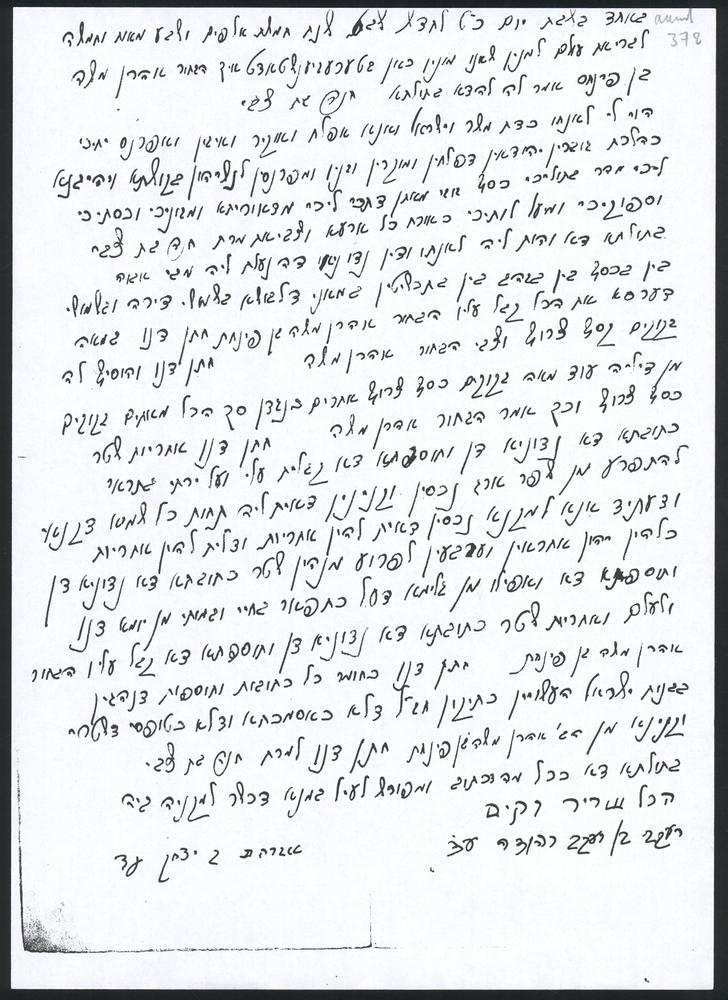 באחד בשבת יום כ"ט לחדש שבט שנת חמשת אלפים ושבע מאות וחמשה
378
לבריאת עולם למנין שאנו מונין כאן איך הבחור אהרן משה
בן פינחס אמר לה להדא בתולתא חנה בת צבי
הוי לי לאנתו כדת משה וישראל ואנא אפלח ואוקיר ואיזון ואפרנס יתיכי
כהלכת גוברין יהודאין דפלחין ומוקרין וזנין ומפרנסין לנשיהון בקושטא ויהיבנא
ליכי מהר בתוליכי כסף זוזי מאתן דחזי ליכי מדאוריתא ומזוניכי וכסותיכי
וסיפוקיכי ומיעל לותיכי כאורח כל ארעא וצביאת מרת חנה בת צבי
בתולתא דא והות ליה לאנתו ודין נדוניא דהנעלת ליה מבי אבוה
בין בכסף בין בזהב בין בתכשיטין במאני דלבושא בשימושי דירה ובשמושי
דערסא את הכל קבל עליו הבחור אהרן משה בן פינחס חתן דנן במאה
זקוקים כסף צרוף וצבי הבחור אהרן משה חתן דנן והוסיף לה
מן דיליה עוד מאה זקוקים כסף צרוף אחרים כנגדן סך הכל מאתים זקוקים
כסף צרוף וכך אמר הבחור אהרן משה חתן דנן אחריות שטר
כתובתא דא נדוניא דן ותוספתא דא קבלית עלי ועל ירתי בתראי
להתפרע מן שפר ארג נכסין וקנינין דאית לי תחות כל שמיא דקנאי
ודעתיד אנא למקנא נכסין דאית להון אחריות ודלית להון אחריות
כלהון יהון אחראין וערבאין לפרוע מנהון שטר כתובתא דא נדוניא דן
ותוספתא דא ואפילו מן גלימא דעל כתפאי בחיי ובמותי מן יומא דנן
ולעלם ואחריות שטר כתובתא דא נדוניא דן ותוספתא דא קבל עליו הבחור
אהרן משה בן פינחס חתן דנן כחומר כל כתובות ותוספות דנהגין
בבנות ישראל העשויין כתיקון חז"ל דלא כאסמכתא ודלא כטופסי דשטרי
וקנינא מן הב' אהרן משה בן פינחס חתן דנן למרת חנה בת צבי
בתולתא דא ככל מה דכתוב ומפורש לעיל במנא דכשר למקניה ביה
הכל שריר וקים
יעקב בן יעקב עד
אברהם ב יצחק עד